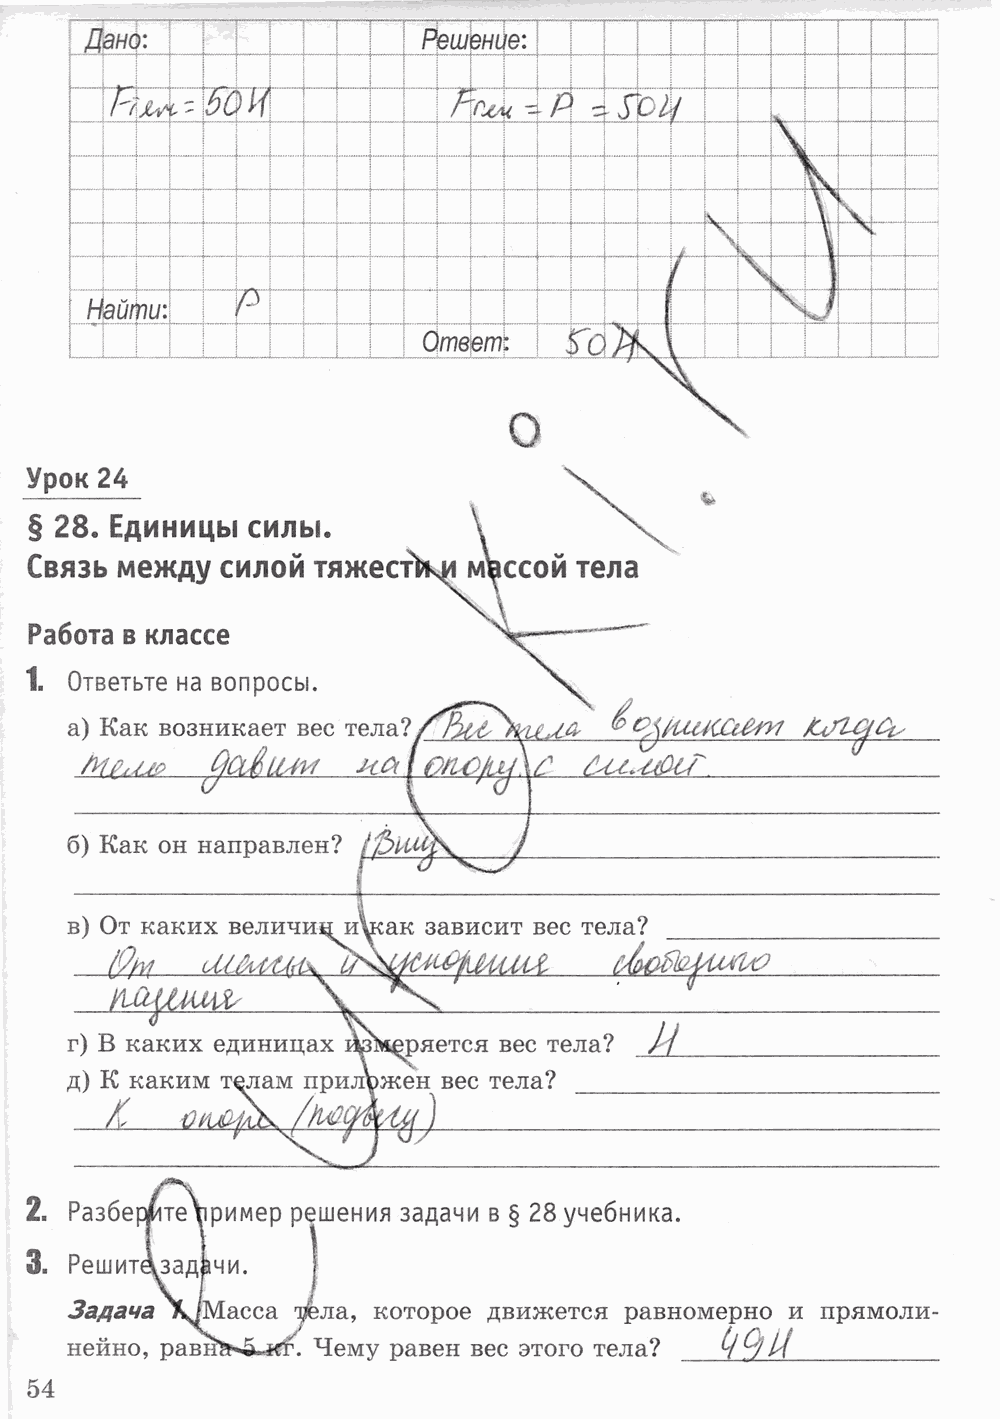 Дано: Решение:
Fтяж = 50Н Fтяж = P = 50Н
Найти: P
Ответ: 50Н
Урок 24
§ 28. Единицы силы.
Связь между силой тяжести и массой тела
Работа в классе
1. Ответьте на вопросы.
а) Как возникает вес тела? Вес тела возникает когда
тело давит на опору с силой.
б) Как он направлен? Вниз
в) От каких величин и как зависит вес тела?
От массы и ускорения свободного
падения
г) В каких единицах измеряется вес тела? Н
д) К каким телам приложен вес тела?
К опоре (подвесу)
2. Разберите пример решения задачи в § 28 учебника.
3. Решите задачи.
Задача 1. Масса тела, которое движется равномерно и прямоли-
нейно, равна 5 кг. Чему равен вес этого тела? 49Н
54